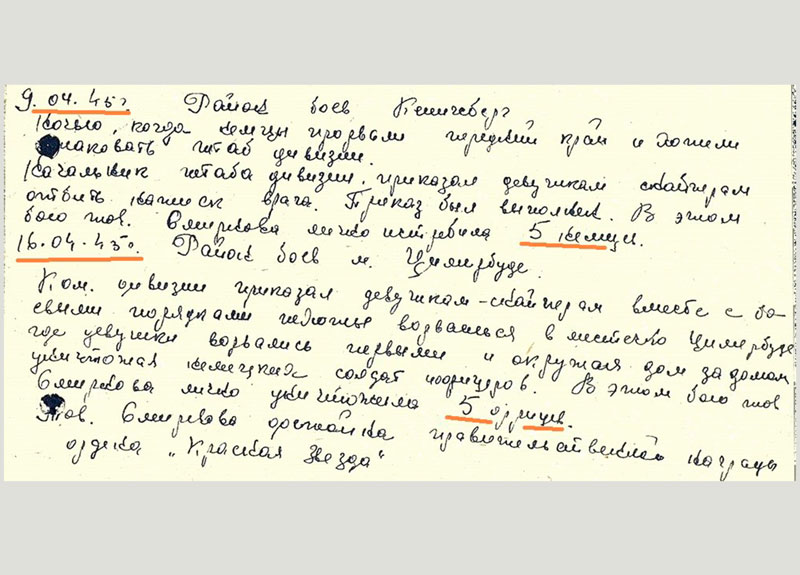 9.04.45г. Район боев Кенигсберг
Ночью, когда немцы прорвали передний край и хотели
атаковать штаб дивизии.
Начальник штаба дивизии, приказал девушкам снайперам
отбить натиск врага. Приказ был выполнен. В этом
бою тов. Смиркова лично истребила 5 немцев.
16.04.45г. Район боев м. Цимербуде.
Ком. дивизии приказал девушкам-снайперам вместе с бо-
евыми порядками пехоты ворваться в местечко Цимербуде
где девушки ворвались первыми и окружая дом за домом
уничтожая немецких солдат и офицеров. В этом бою тов
Смиркова лично уничтожила 5 фрицев.
Тов. Смиркова достойна правительственной награды
ордена „Красная звезда"